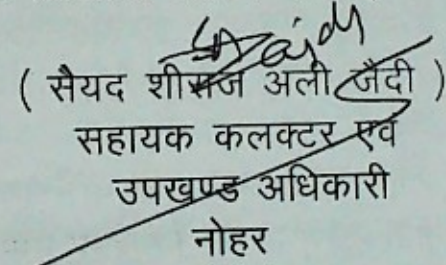 ( सैयद शीराज अली जैदी )
सहायक कलक्टर एवं
उपखण्ड अधिकारी
नोहर